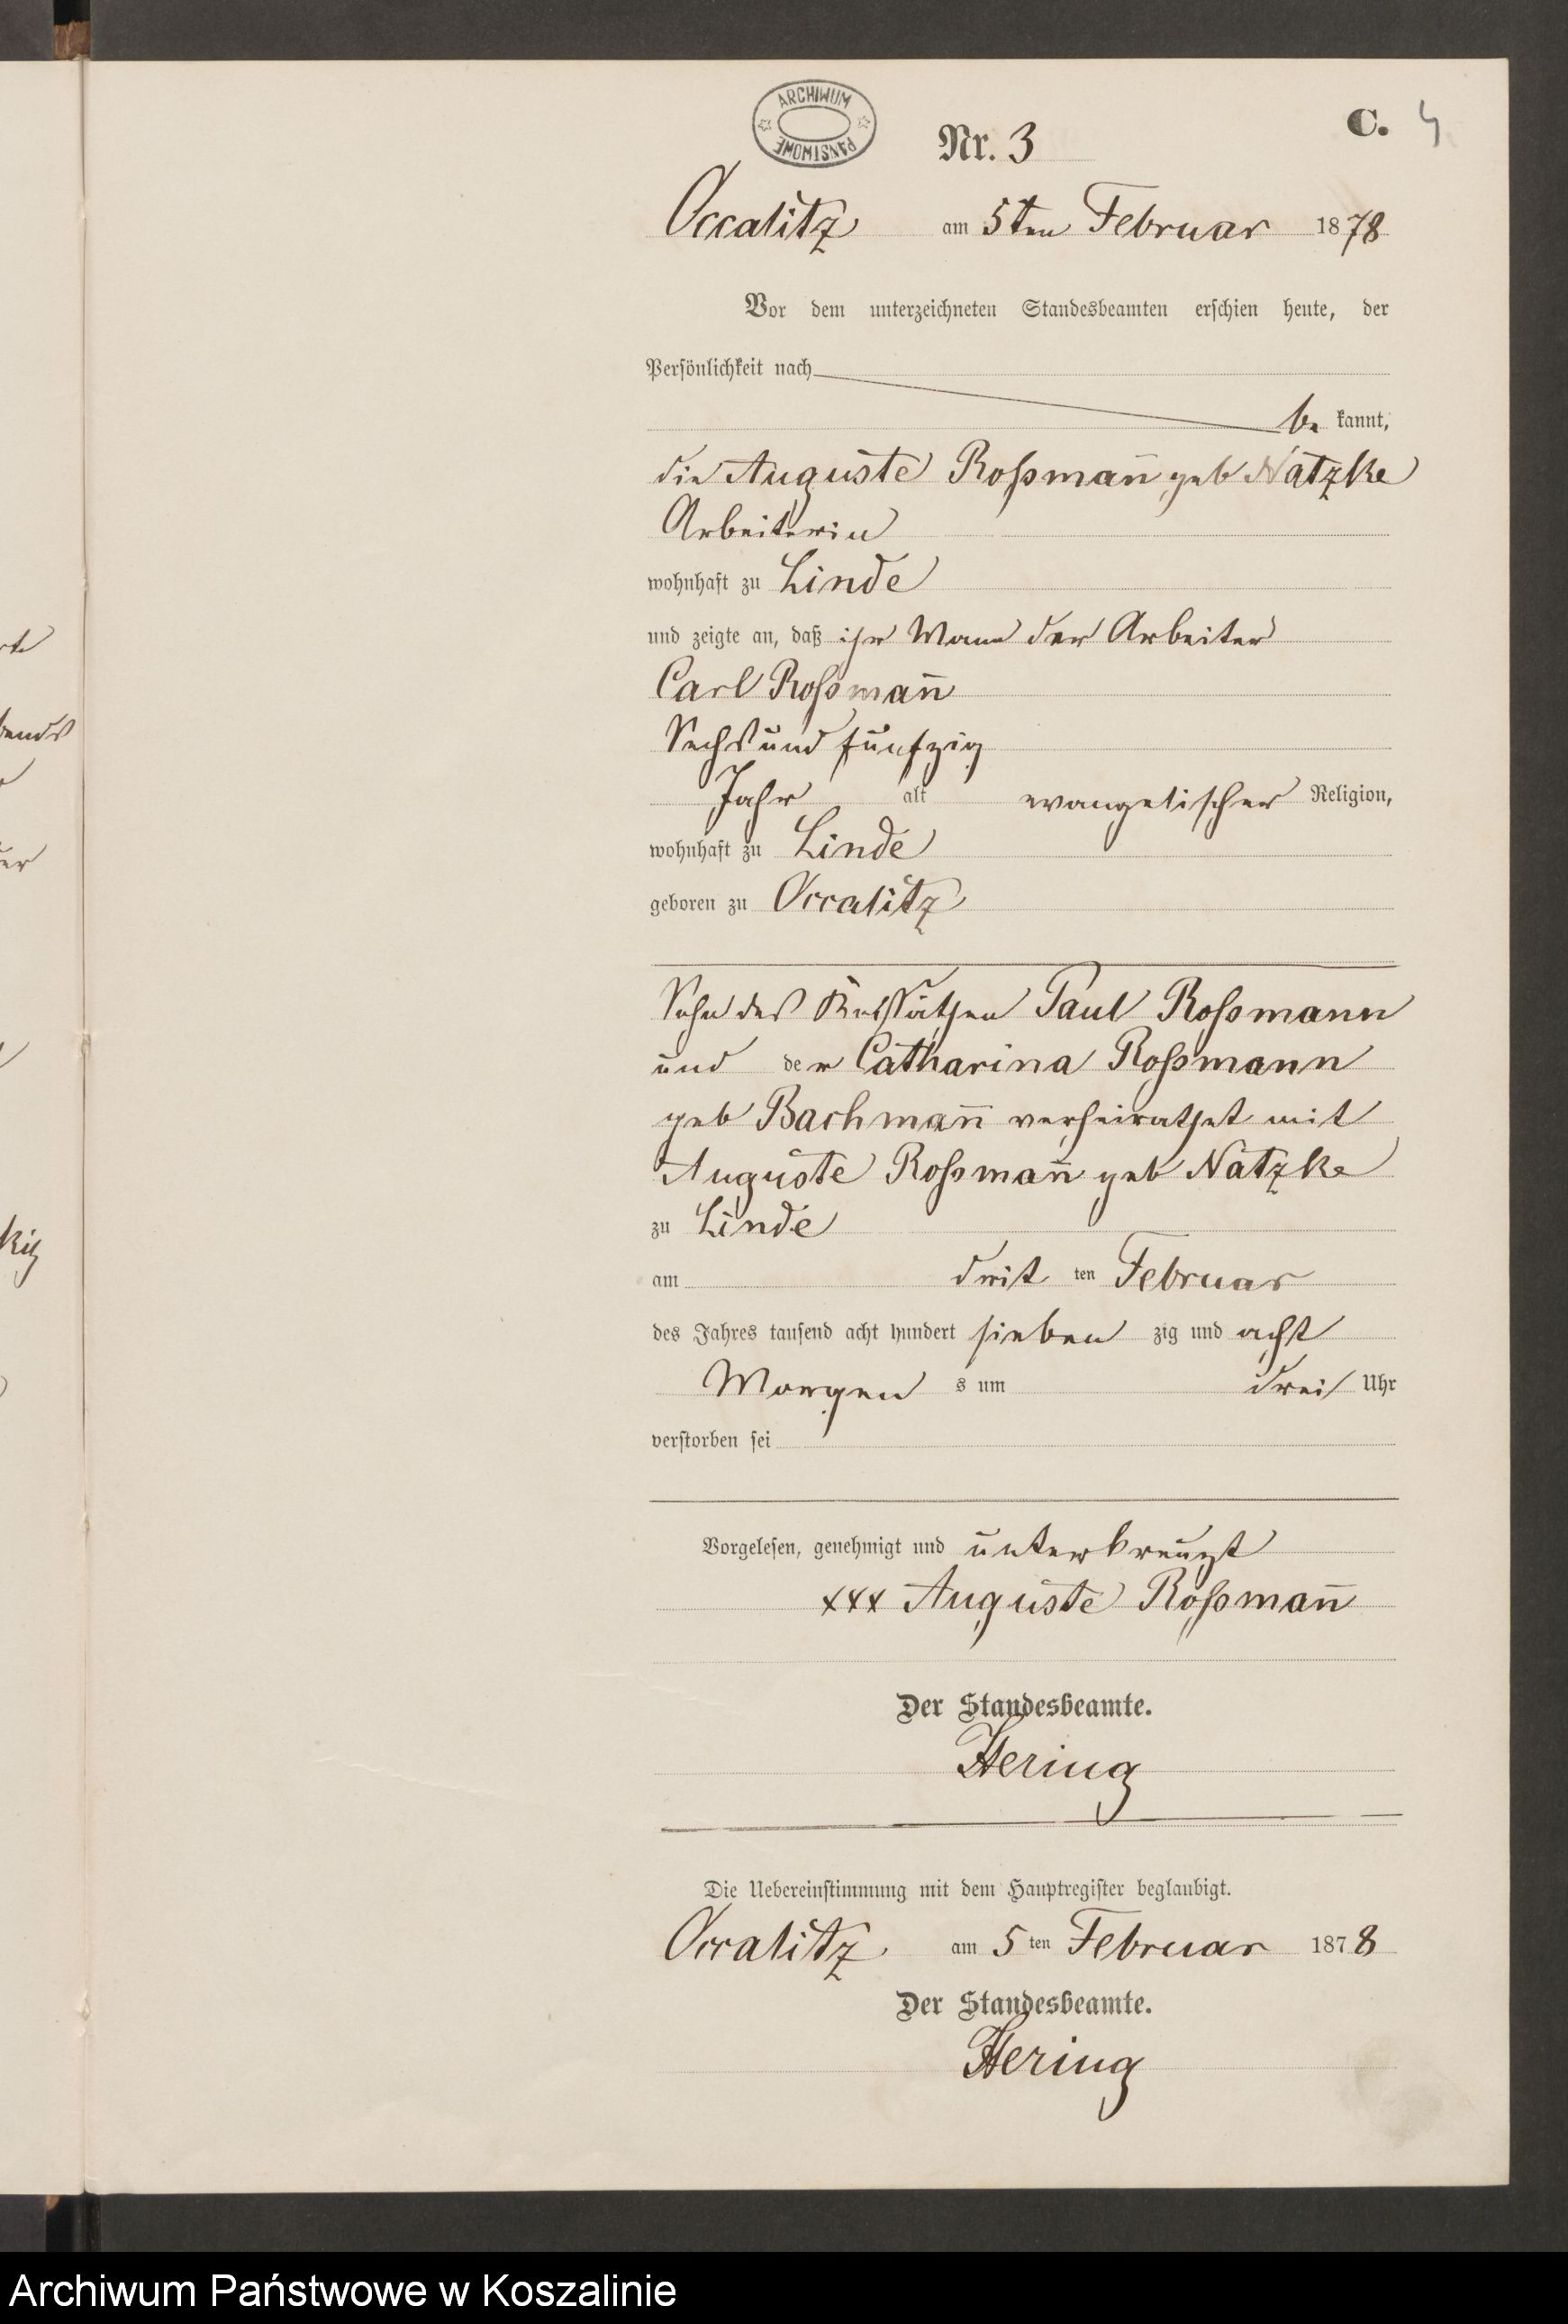 rte
bends
er
kitz
ARCHIWUM
PAŃSTWOWE
C. 4
Nr. 3
Occalitz am 5ten Februar 1878
Vor dem unterzeichneten Standesbeamten erschien heute, der
Persönlichkeit nach
be kannt,
die Auguste Roßman̅ geb Natzke
Arbeiterin
wohnhaft zu Linde
und zeigte an, daß ihr Mann der Arbeiter
Carl Roßman̅
Sechs und fünfzig
Jahr alt evangelischer Religion,
wohnhaft zu Linde
geboren zu Occalitz
Sohn des Kossäthen Paul Roßmann
und der Catharina Roßmann
geb Bachman̅ verheirathet mit
Auguste Roßman̅ geb Natzke
zu Linde
am drit ten Februar
des Jahres tausend acht hundert sieben zig und acht
Morgen s um drei Uhr
verstorben sei
Vorgelesen, genehmigt und unterkreuzt
xxx Auguste Roßman̅
Der Standesbeamte.
Hering
Die Uebereinstimmung mit dem Hauptregister beglaubigt.
Occalitz am 5 ten Februar 1878
Der Standesbeamte.
Hering
Archiwum Państwowe w Koszalinie